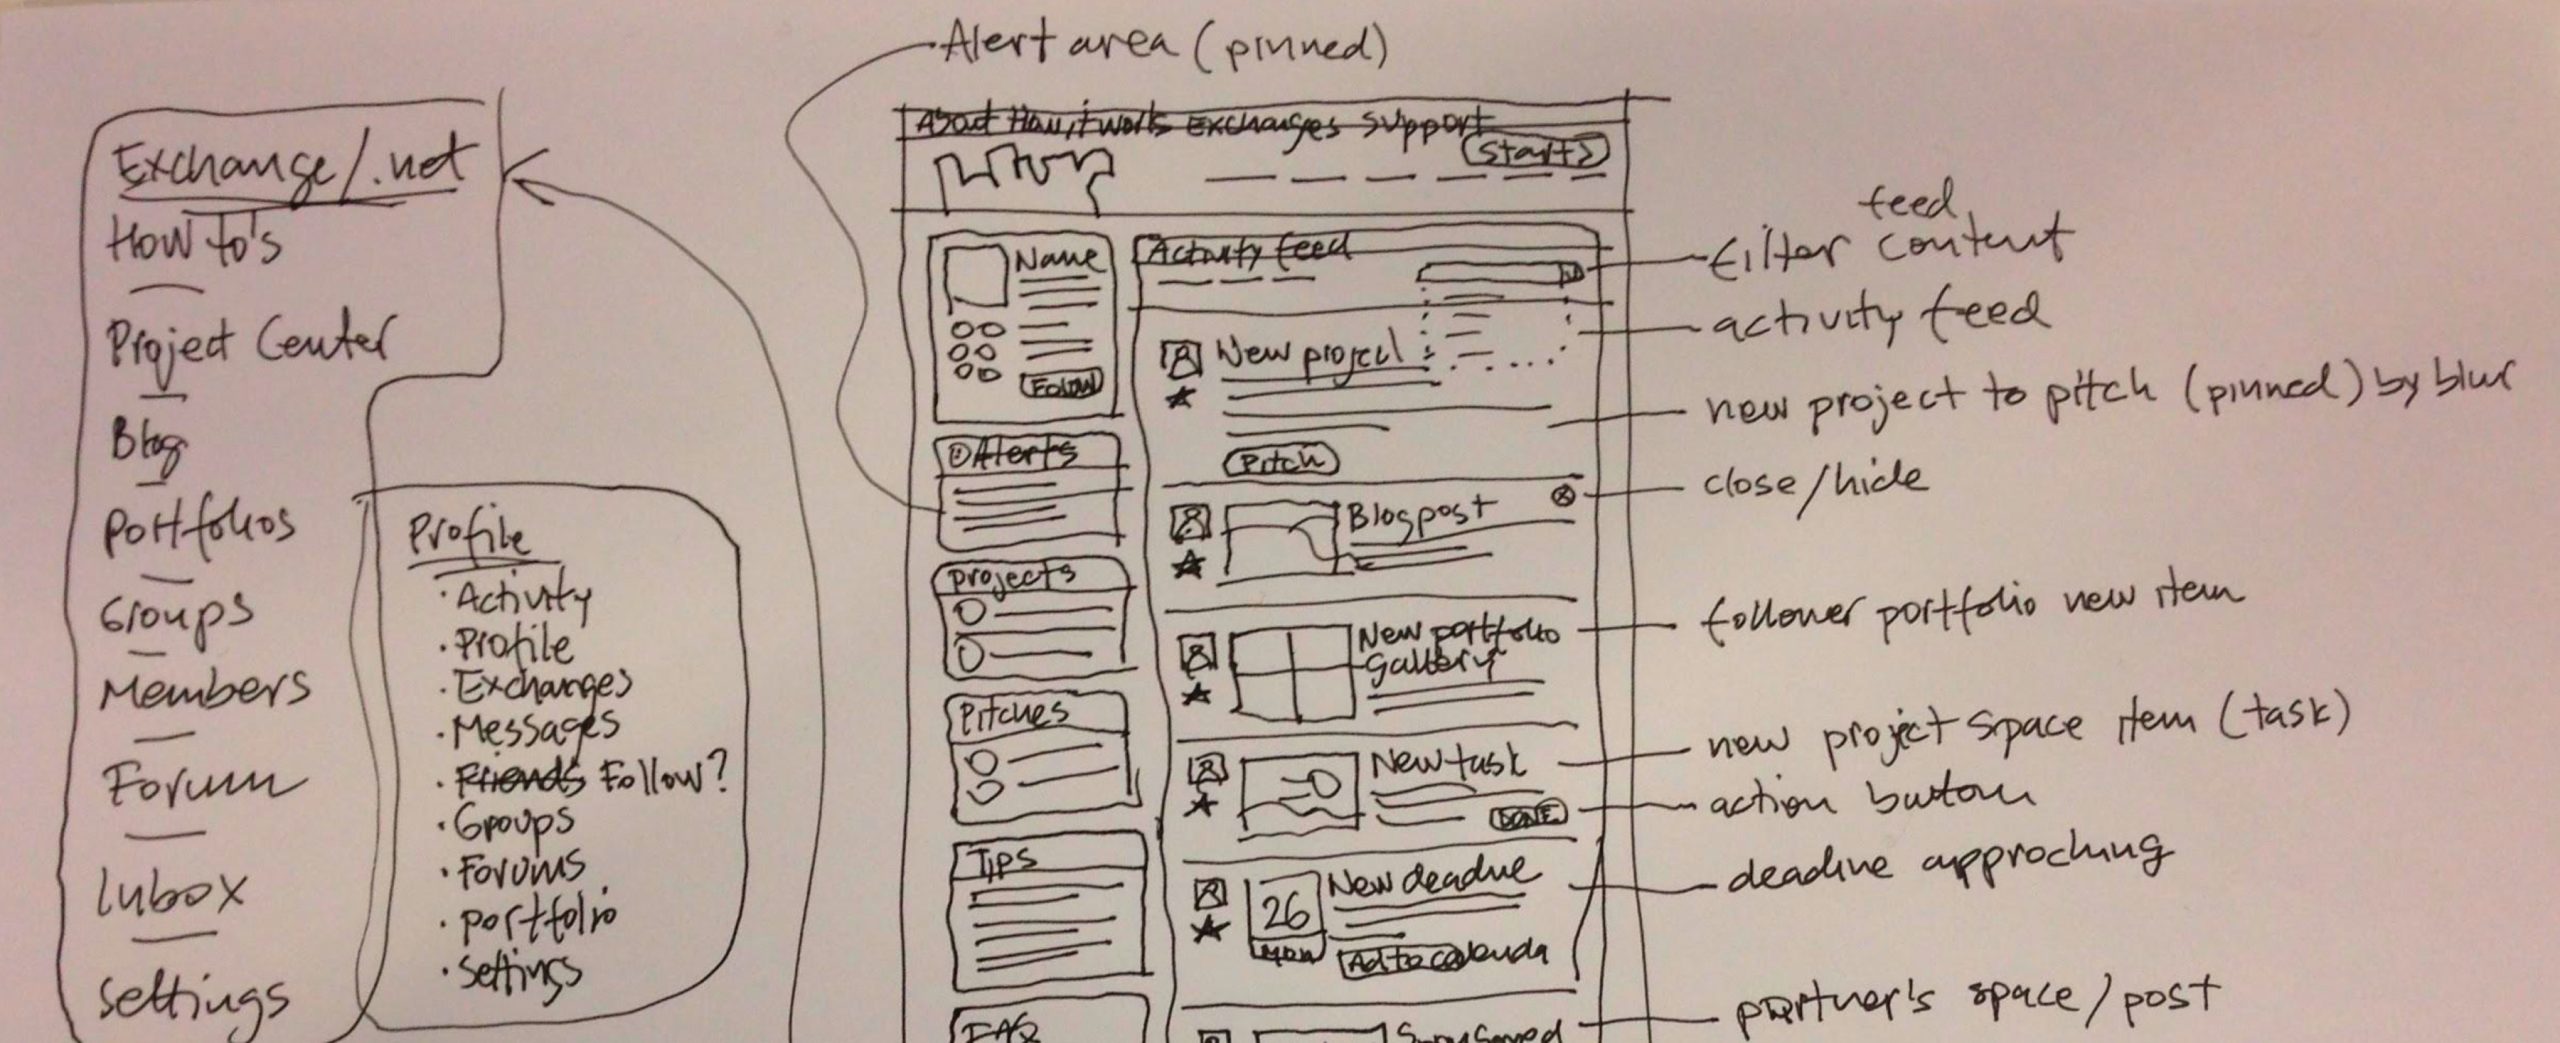 Alert area (pinned)
Exchange/.net
How to's
Project Center
Blog
Portfolios
Groups
Members
Forum
Inbox
Settings
Profile
· Activity
· Profile
· Exchanges
· Messages
· Friends Follow?
· Groups
· Forums
· portfolio
· Settings
About How it works Exchanges Support
Start >
Name
Follow
Alerts
Projects
Pitches
Tips
FAQ
Activity feed
New project
Pitch
Blogpost
New portfolio
Gallery
New task
DONE
New deadline
26
Mon
Ad to calenda
Sponsored
feed
filter content
activity feed
new project to pitch (pinned) by blur
close/hide
follower portfolio new item
new project space item (task)
action button
deadline approching
partner's space/post